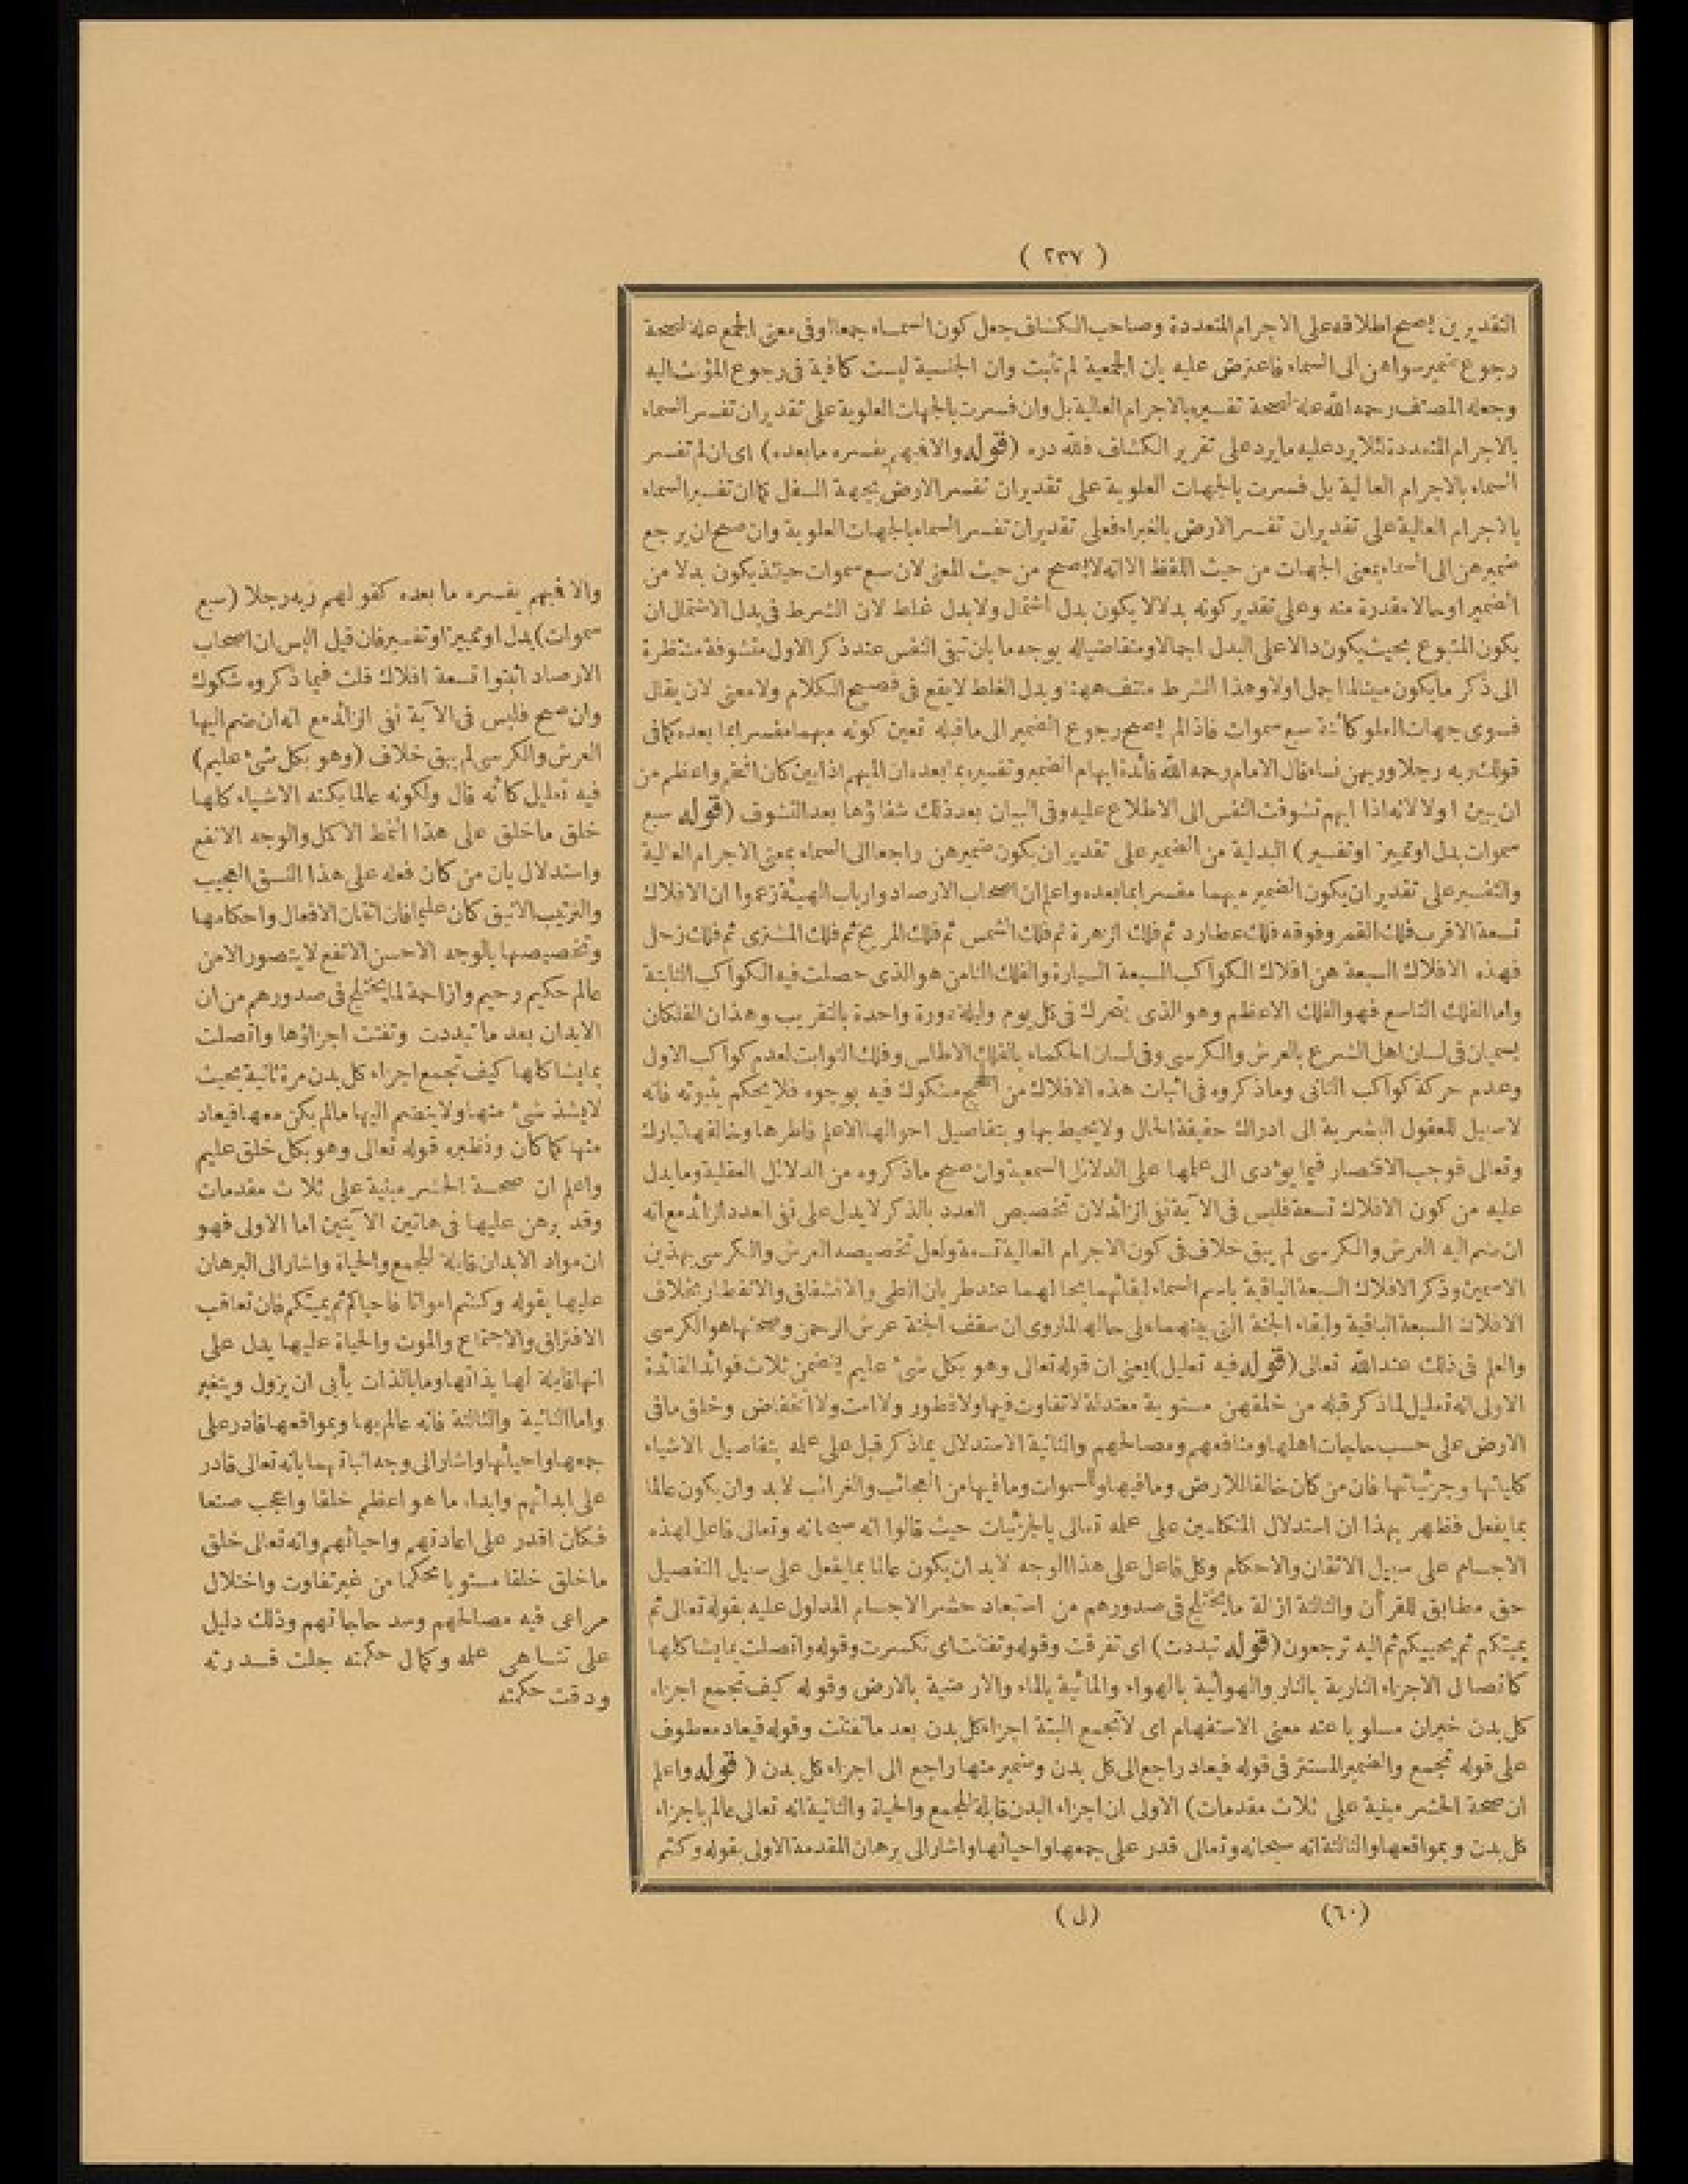 ( ٢٣٧ )
التقديرين ليصح اطلاقه على الاجرام المتعددة وصاحب الكشاف جعل كون السماء جمعا او فى معنى الجمع علة لصحة
رجوع ضمير سواهن الى السماء فاعترض عليه بان الجمعية لم تثبت وان الجنسية ليست كافية فى رجوع المؤنث اليه
وجعله المصنف رحمه الله علة لصحة تفسيره بالاجرام العالية بل وان فسرت بالجهات العلوية على تقدير ان تفسر السماء
بالاجرام المتعددة لئلا يرد عليه ما يرد على تقرير الكشاف فلله دره (قوله والا فبهم يفسره ما بعده) اى ان لم تفسر
السماء بالاجرام العالية بل فسرت بالجهات العلوية على تقدير ان تفسر الارض بجهة السفل كما ان تفسير السماء
بالاجرام العالية على تقدير ان تفسر الارض بالغبراء فعلى تقدير ان تفسر السماء بالجهات العلوية وان صح ان يرجع
ضمير هن الى السماء بمعنى الجهات من حيث اللفظ الا انه لا يصح من حيث المعنى لان سبع سموات حينئذ يكون بدلا من
الضمير او حالا مقدرة منه وعلى تقدير كونه بدلا لا يكون بدل اشتمال ولا بدل غلط لان الشرط فى بدل الاشتمال ان
يكون المتبوع بحيث يكون دالا على البدل اجمالا ومتقاضيا له بوجه ما بان تبقى النفس عند ذكر الاول متشوفة منتظرة
الى ذكر ما يكون مبينا لما اجمل اولا وهذا الشرط منتف ههنا وبدل الغلط لا يقع فى فصيح الكلام ولا معنى لان يقال
فسوى جهات العلو كائنة سبع سموات فاذا لم يصح رجوع الضمير الى ما قبله تعين كونه مبهما مفسرا بما بعده كما فى
قولك ربه رجلا وربهن نساء قال الامام رحمه الله فائدة ابهام الضمير وتفسيره بما بعده ان المبهم اذا بين كان افخم واعظم من
ان يبين اولا لانه اذا ابهم تشوفت النفس الى الاطلاع عليه وفى البيان بعد ذلك شفاؤها بعد التشوف (قوله سبع
سموات بدل او تمييز او تفسير) البدلية من الضمير على تقدير ان يكون ضمير هن راجعا الى السماء بمعنى الاجرام العالية
والتفسير على تقدير ان يكون الضمير مبهما مفسرا بما بعده واعلم ان اصحاب الارصاد وارباب الهيئة زعموا ان الافلاك
تسعة الاقرب فلك القمر وفوقه فلك عطارد ثم فلك الزهرة ثم فلك الشمس ثم فلك المريخ ثم فلك المشترى ثم فلك زحل
فهذه الافلاك السبعة هن افلاك الكواكب السبعة السيارة والفلك الثامن هو الذى حصلت فيه الكواكب الثابتة
واما الفلك التاسع فهو الفلك الاعظم وهو الذى يتحرك فى كل يوم وليلة دورة واحدة بالتقريب وهذان الفلكان
يسميان فى لسان اهل الشرع بالعرش والكرسى وفى لسان الحكماء بالفلك الاطلس وفلك الثوابت لعدم كواكب الاول
وعدم حركة كواكب الثانى وما ذكروه فى اثبات هذه الافلاك من الحجج مشكوك فيه بوجوه فلا يحكم بثبوته فانه
لا سبيل للعقول البشرية الى ادراك حقيقة الحال ولا يحيط بها وبتفاصيل احوالها الا علم فاطرها وخالقها تبارك
وتعالى فوجب الاقتصار فيما يؤدى الى علمها على الدلائل السمعية وان صح ما ذكروه من الدلائل العقلية وما يدل
عليه من كون الافلاك تسعة فليس فى الآية نفى الزائد لان تخصيص العدد بالذكر لا يدل على نفى العدد الزائد مع انه
ان ضم اليه العرش والكرسى لم يبق خلاف فى كون الاجرام العالية تسعة ولعل تخصيصه العرش والكرسى بهذين
الاسمين وذكر الافلاك السبعة الباقية باسم السماء لبقائهما بحالهما عند طريان الطى والانشقاق والانفطار بخلاف
الافلاك السبعة الباقية ولبقاء الجنة التى بينهما على حالها لما روى ان سقف الجنة عرش الرحمن وصحنها هو الكرسى
والعلم فى ذلك عند الله تعالى (قوله فيه تعليل) يعنى ان قوله تعالى وهو بكل شىء عليم يتضمن ثلاث فوائد الفائدة
الاولى انه تعليل لما ذكر قبله من خلقهن مستوية معتدلة لا تفاوت فيها ولا فطور ولا امت ولا انخفاض وخلق ما فى
الارض على حسب حاجات اهلها ومنافعهم ومصالحهم والثانية الاستدلال بما ذكر قبل على علمه بتفاصيل الاشياء
كلياتها وجزئياتها فان من كان خالقا للارض وما فيها والسموات وما فيها من العجائب والغرائب لا بد وان يكون عالما
بما يفعل فظهر بهذا ان استدلال المتكلمين على علمه تعالى بالجزئيات حيث قالوا انه سبحانه وتعالى فاعل لهذه
الاجسام على سبيل الاتقان والاحكام وكل فاعل على هذا الوجه لا بد ان يكون عالما بما يفعل على سبيل التفصيل
حق مطابق للقرآن والثالثة ازالة ما يختلج فى صدورهم من استبعاد حشر الاجسام المدلول عليه بقوله تعالى ثم
يميتكم ثم يحييكم ثم اليه ترجعون (قوله تبددت) اى تفرقت وقوله وتفتتت اى تكسرت وقوله واتصلت بما يشاكلها
كاتصال الاجزاء النارية بالنار والهوائية بالهواء والمائية بالماء والارضية بالارض وقوله كيف تجمع اجزاء
كل بدن خبران مسلوبا عنه معنى الاستفهام اى لا تجمع البتة اجزاء كل بدن بعد ما تفتتت وقوله فيعاد معطوف
على قوله تجمع والضمير المستتر فى قوله فيعاد راجع الى كل بدن وضمير منها راجع الى اجزاء كل بدن (قوله واعلم
ان صحة الحشر مبنية على ثلاث مقدمات) الاولى ان اجزاء البدن قابلة للجمع والحياة والثانية انه تعالى عالم باجزاء
كل بدن وبمواقعها والثالثة انه سبحانه وتعالى قدر على جمعها واحيائها واشار الى برهان المقدمة الاولى بقوله وكنتم
والا فبهم يفسره ما بعده كقولهم ربه رجلا (سبع
سموات) بدل او تمييز او تفسير فان قيل اليس ان اصحاب
الارصاد اثبتوا تسعة افلاك قلت فيما ذكروه شكوك
وان صح فليس فى الآية نفى الزائد مع انه ان ضم اليها
العرش والكرسى لم يبق خلاف (وهو بكل شىء عليم)
فيه تعليل كأنه قال ولكونه عالما بكنه الاشياء كلها
خلق ما خلق على هذا النمط الاكمل والوجه الانفع
واستدلال بان من كان فعله على هذا النسق العجيب
والترتيب الانيق كان عليما فان اتقان الافعال واحكامها
وتخصيصها بالوجه الاحسن الانفع لا يتصور الا من
عالم حكيم رحيم وازاحة لما يختلج فى صدورهم من ان
الابدان بعد ما تبددت وتفتت اجزاؤها واتصلت
بما يشاكلها كيف تجمع اجزاء كل بدن مرة ثانية بحيث
لا يشذ شىء منها ولا ينضم اليها ما لم يكن معها فيعاد
منها كما كان ونظيره قوله تعالى وهو بكل خلق عليم
واعلم ان صحة الحشر مبنية على ثلاث مقدمات
وقد برهن عليها فى هاتين الآيتين اما الاولى فهو
ان مواد الابدان قابلة للجمع والحياة واشار الى البرهان
عليها بقوله وكنتم امواتا فاحياكم ثم يميتكم فان تعاقب
الافتراق والاجتماع والموت والحياة عليها يدل على
انها قابلة لها بذاتها وما بالذات يأبى ان يزول ويتغير
واما الثانية والثالثة فانه عالم بها وبمواقعها قادر على
جمعها واحيائها واشار الى وجه اثباتهما بانه تعالى قادر
على ابدائهم وابداء ما هو اعظم خلقا واعجب صنعا
فكان اقدر على اعادتهم واحيائهم وانه تعالى خلق
ما خلق خلقا مستويا محكما من غير تفاوت واختلال
مراعى فيه مصالحهم وسد حاجاتهم وذلك دليل
على تناهى علمه وكمال حكمته جلت قدرته
ودقت حكمته
(٦٠) (ل)